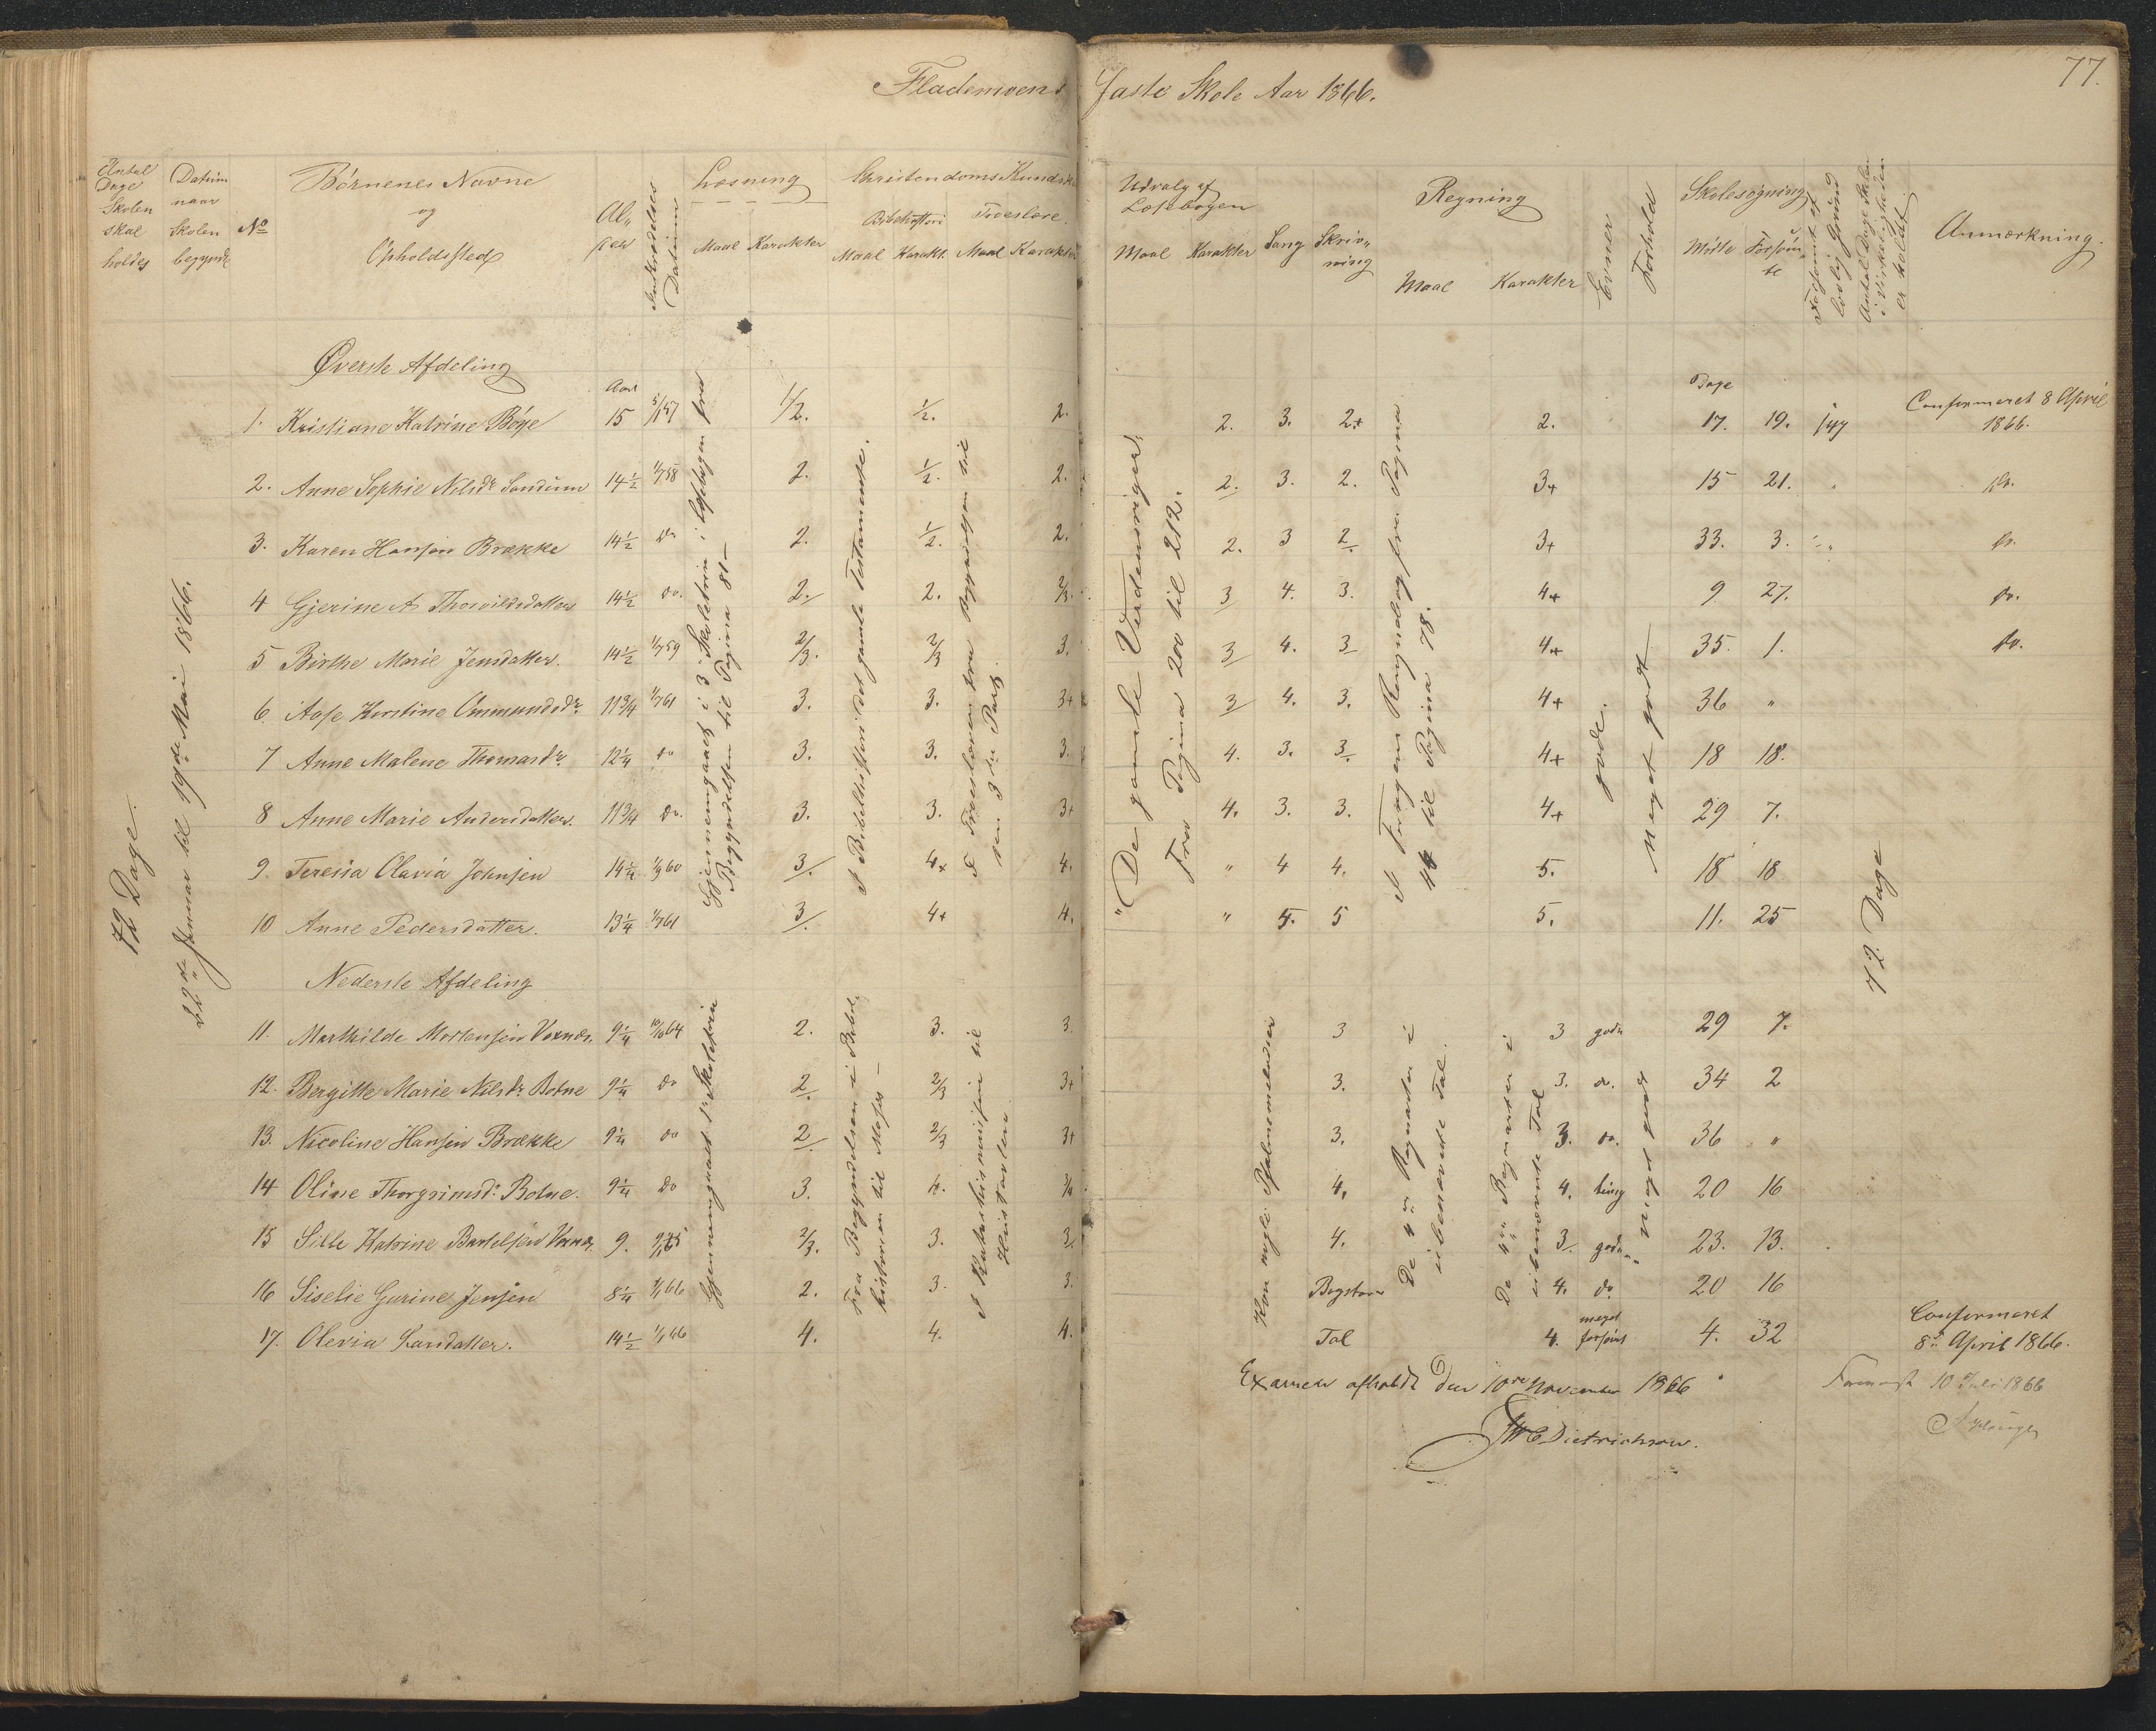 77.
Flademoens faste Skole Aar 1866.
Antal Dage Skolen skal holdes
Datum naar Skolen begynte
No
Børnenes Navne og Opholdssted
Al„ der
Indtrædelses Datum
Læsning
Maal Karakter
Christendoms Kundsk
Bibelhistori
Maal Karakt.
Troeslære.
Maal Karakter
Udvalg af Læsebogen
Maal Karakter
Sang
Skriv„ ning
Regning
Maal Karakter
Evner
Forhold
Skolesøgning
Mødte Forsøm„ te
Forsømt af lovlig Grund
Antal Dage Skolen i Virkeligheden er holdt
Anmærkning.
72 Dage.
22de Januar til 19de Mai 1866.
Øverste Afdeling
Aar
Dage
1. Kristiane Katrine Bøye 15 5/1 57 1/2. 1/2. 2. 2. 3. 2+ 2. 17. 19. Confirmeret 8 April 1866.
2. Anne Sophie Nilsdr Sandum 14½ 1/7 58 2. 1/2. 2. 2. 3. 2. 3+ 15 21. „ do.
3. Karen Hansen Brække 14½ do 2. 1/2. 2. 2. 3 2. 3+ 33. 3. do.
4 Gjerine A Thorvildsdatter 14½ do. 2. 2. 2/3. 3 4. 3. 4+ 9. 27. do.
5 Birthe Marie Jensdatter. 14½ 1/7 59 2/3. 2/3 3. 3 4. 3 4+ 35. 1. do.
6. Aase Kirstine Ommundsdr. 11¾ 1/7 61 3. 3. 3+ 3 4. 3. 4+ 36 „
7 Anne Malene Thomasdr. 12¼ do 3. 3. 3. 4. 3. 3. 4+ 18 18.
8 Anne Marie Andersdatter. 11¾ do. 3. 3. 3+ 4. 3. 3. 4+ 29 7.
9. Teresia Olavia Johnsen 14¼ 1/9 60 3. 4+ 4. „ 4 4. 5. 18 18
10 Anne Pedersdatter. 13¼ 1/7 61 3. 4+ 4. „ 5. 5 5. 11. 25
Gjennemgaaet i 3. Skoletrin i Læsebogen fra Begyndelsen til Pagina 81–
I Bibelhistori det gamle Testamente.
I Troeslæren fra Begyndelsen til den 3die Part.
"De gamle Verdensriger" Fra Pagina 200 til 212.
I Regnebog fra Pagina 44 til Pagina 78.
gode.
Meget godt
72. Dage
Nederste Afdeling
11. Marthilde Mortensen Voxnæs. 9¼ 10/10 64 2. 3. 3. 3 3 gode 29 7.
12. Bergitte Marie Nilsdr Botne 9¼ do 2 2/3 3+ 3. 3. do. 34 2
13. Nicoline Hansen Brække 9¼ do 2 2/3 3+ 3. 3. do. 36 „
14 Oline Thorgrimsdr Botne. 9¼ do 3. 4. 3/4 4. 4. 20 16
15 Sille Katrine Bartelsen Voxnæs. 9. 2/3. 3. 3. 4. 3. gode 23. 13.
16 Siselie Gurine Jensen 8¼ 1/1 66 2. 3. 3. Bogstav 4. do. 20 16
17. Olevia Larsdatter. 14½ 1/1 66 4. 4. 4. Tal 4. meget forsømt 4. 32 Confirmeret 8de April 1866.
Gjennemgaaet 1ste Skoletrin
Fra Begyndelsen i Bibel„ historien til Moses –
I Katekismusen til Hustavlen.
Kun nogle Psalmemelodier
De 4re Regnarter i ubenævnte Tal.
De 4re Regnarter i ubenævnte Tal
meget godt
Examen afholdt den 10de November 1866
Dietrichson.
10 Juli 1866